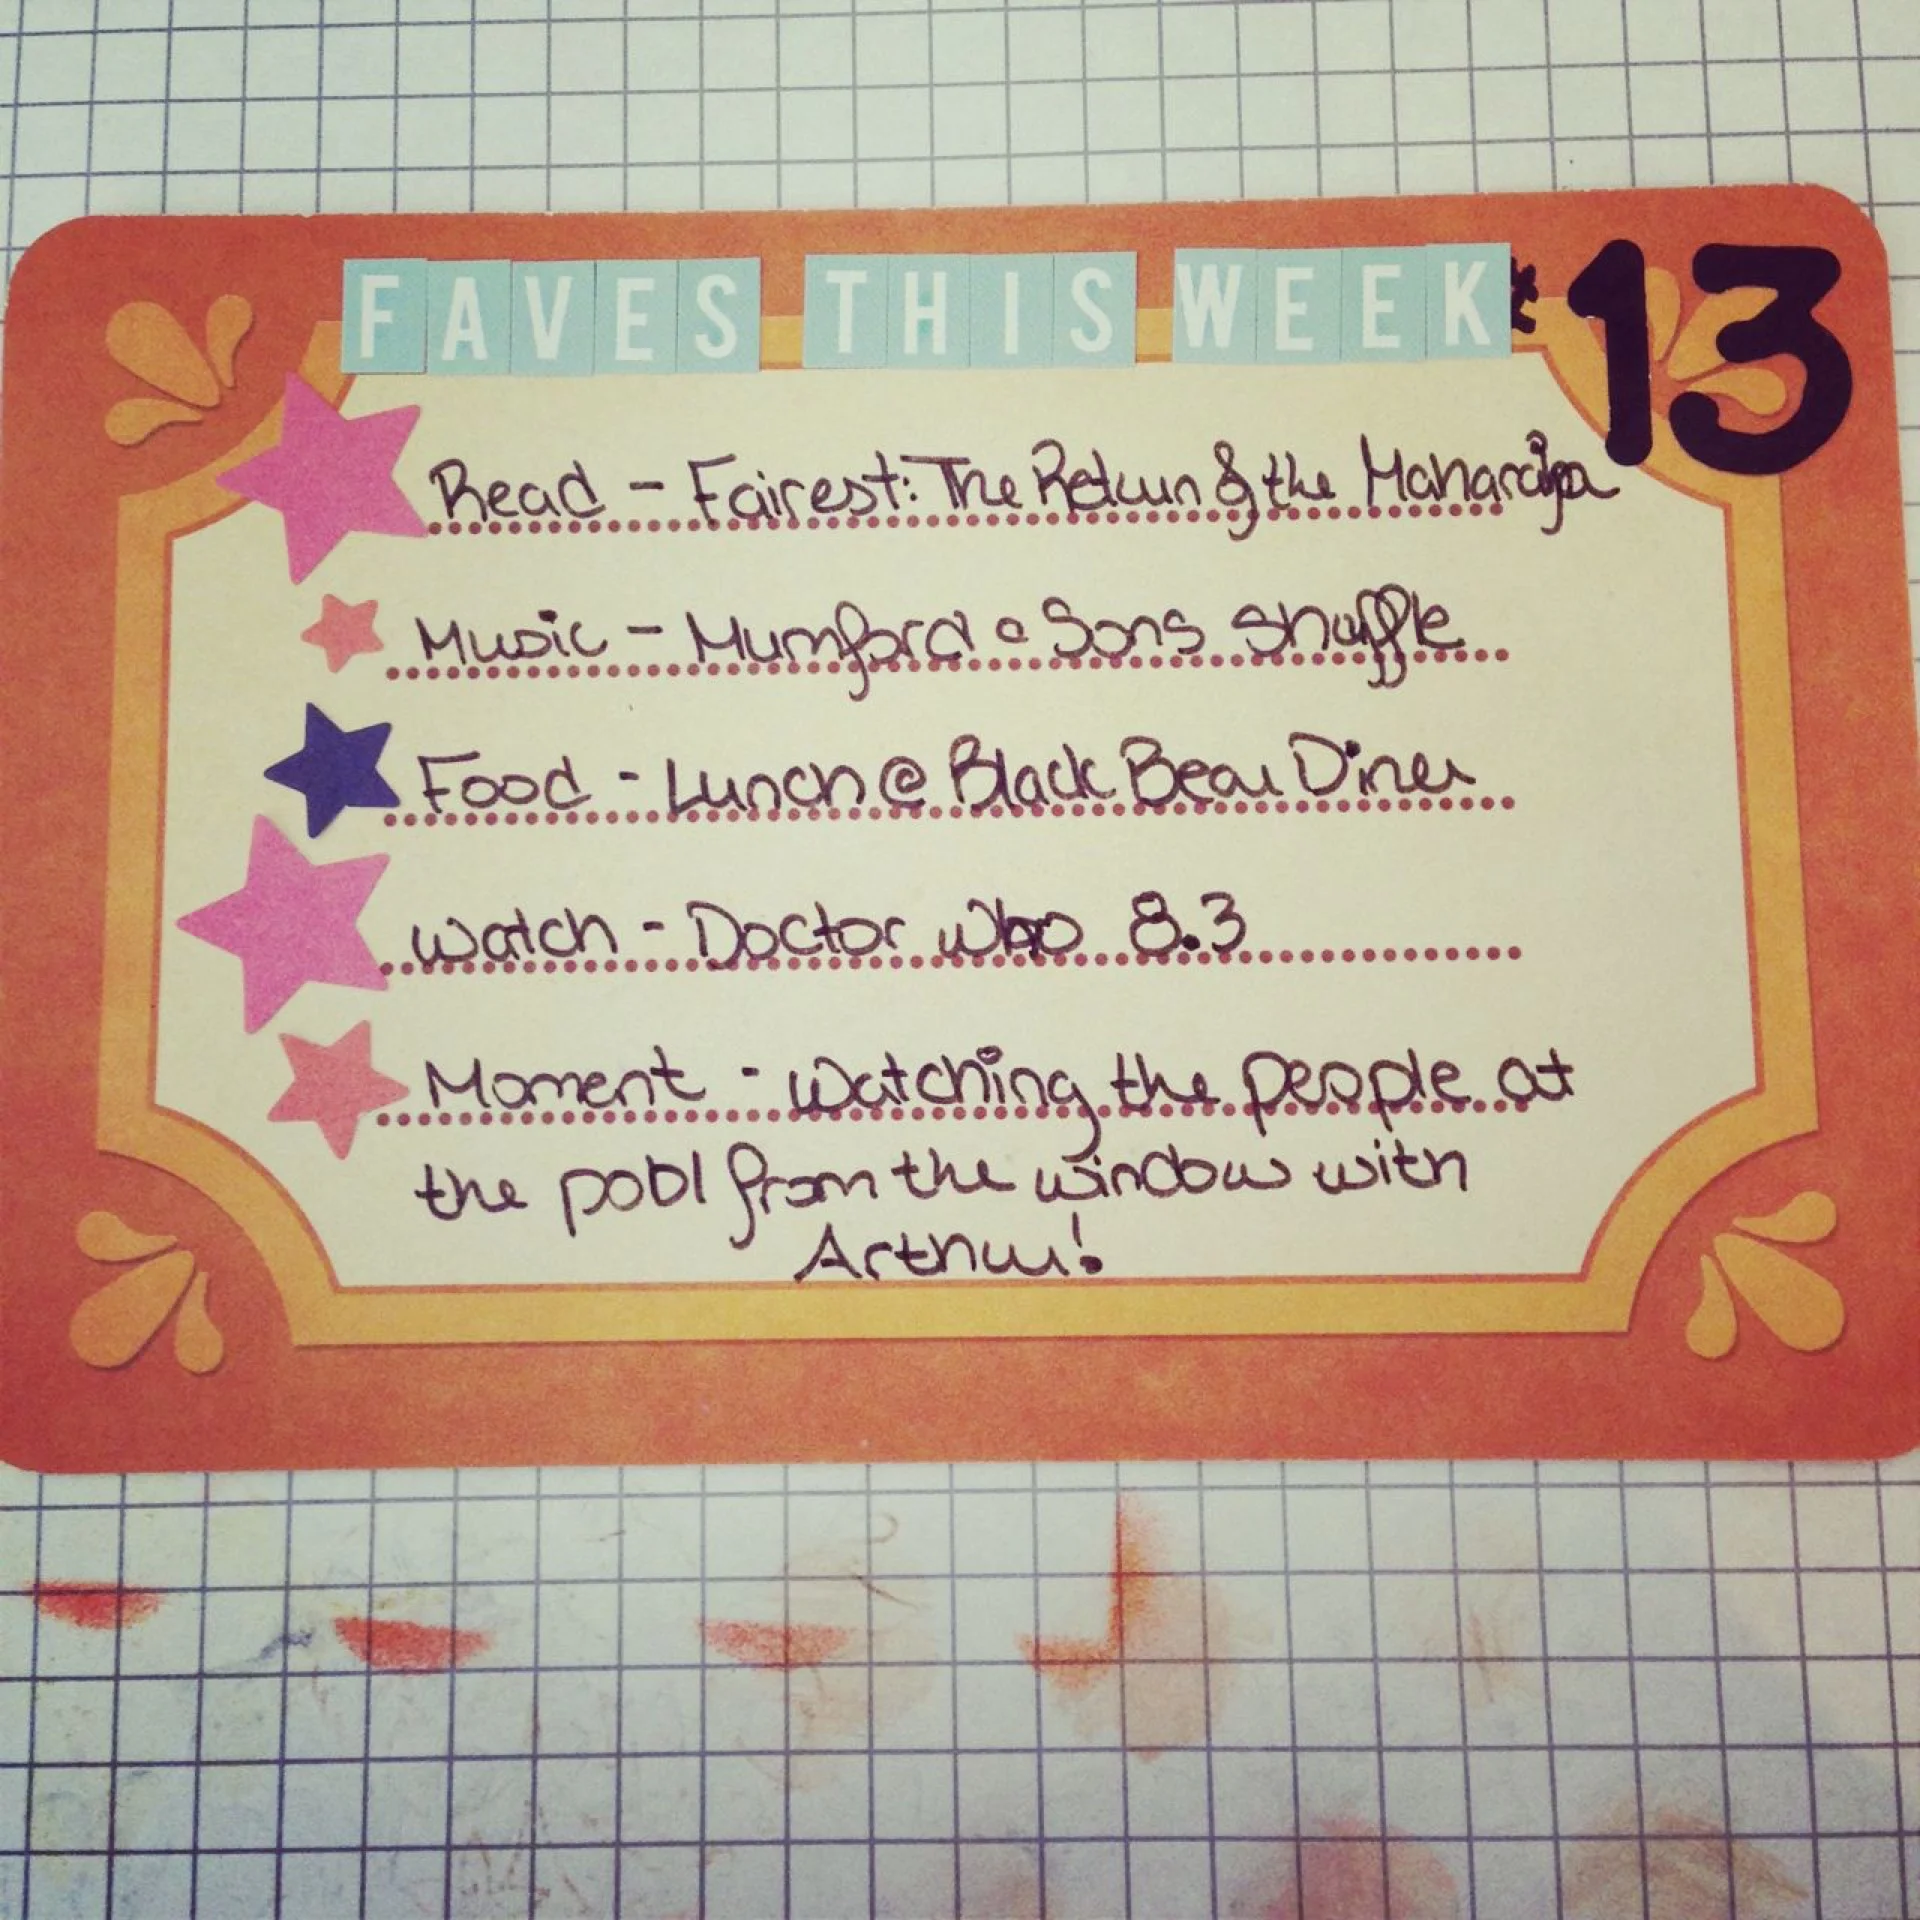 FAVES THIS WEEK #13
Read - Fairest: The Return of the Maharaja
Music - Mumford & Sons shuffle
Food - Lunch @ Black Bear Diner
Watch - Doctor Who 8.3
Moment - Watching the people at
the pool from the window with
Arthur!